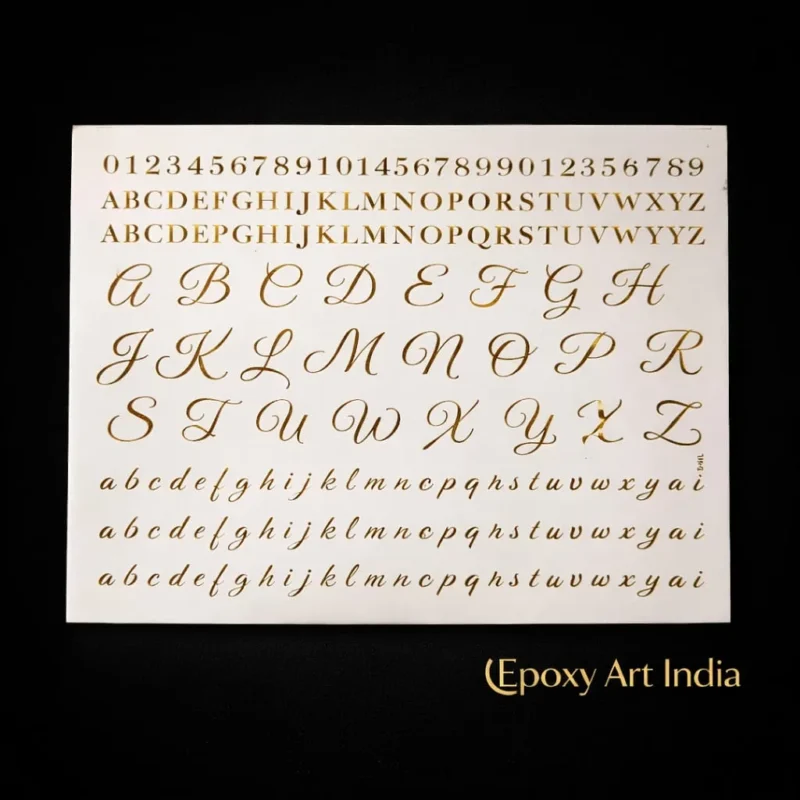 01234567891014567899012356789
ABCDEFGHIJKLMNOPORSTUVWXYZ
ABCDEPGHIJKLMNOPQRSTUVWYYZ
A B C D E F G H
J K L M N O P R
S T U W X Y X Z
a b c d e f g h i j k l m n c p q h s t u v w x y a i
a b c d e f g h i j k l m n c p q h s t u v w x y a i
a b c d e f g h i j k l m n c p q h s t u v w x y a i
Epoxy Art India